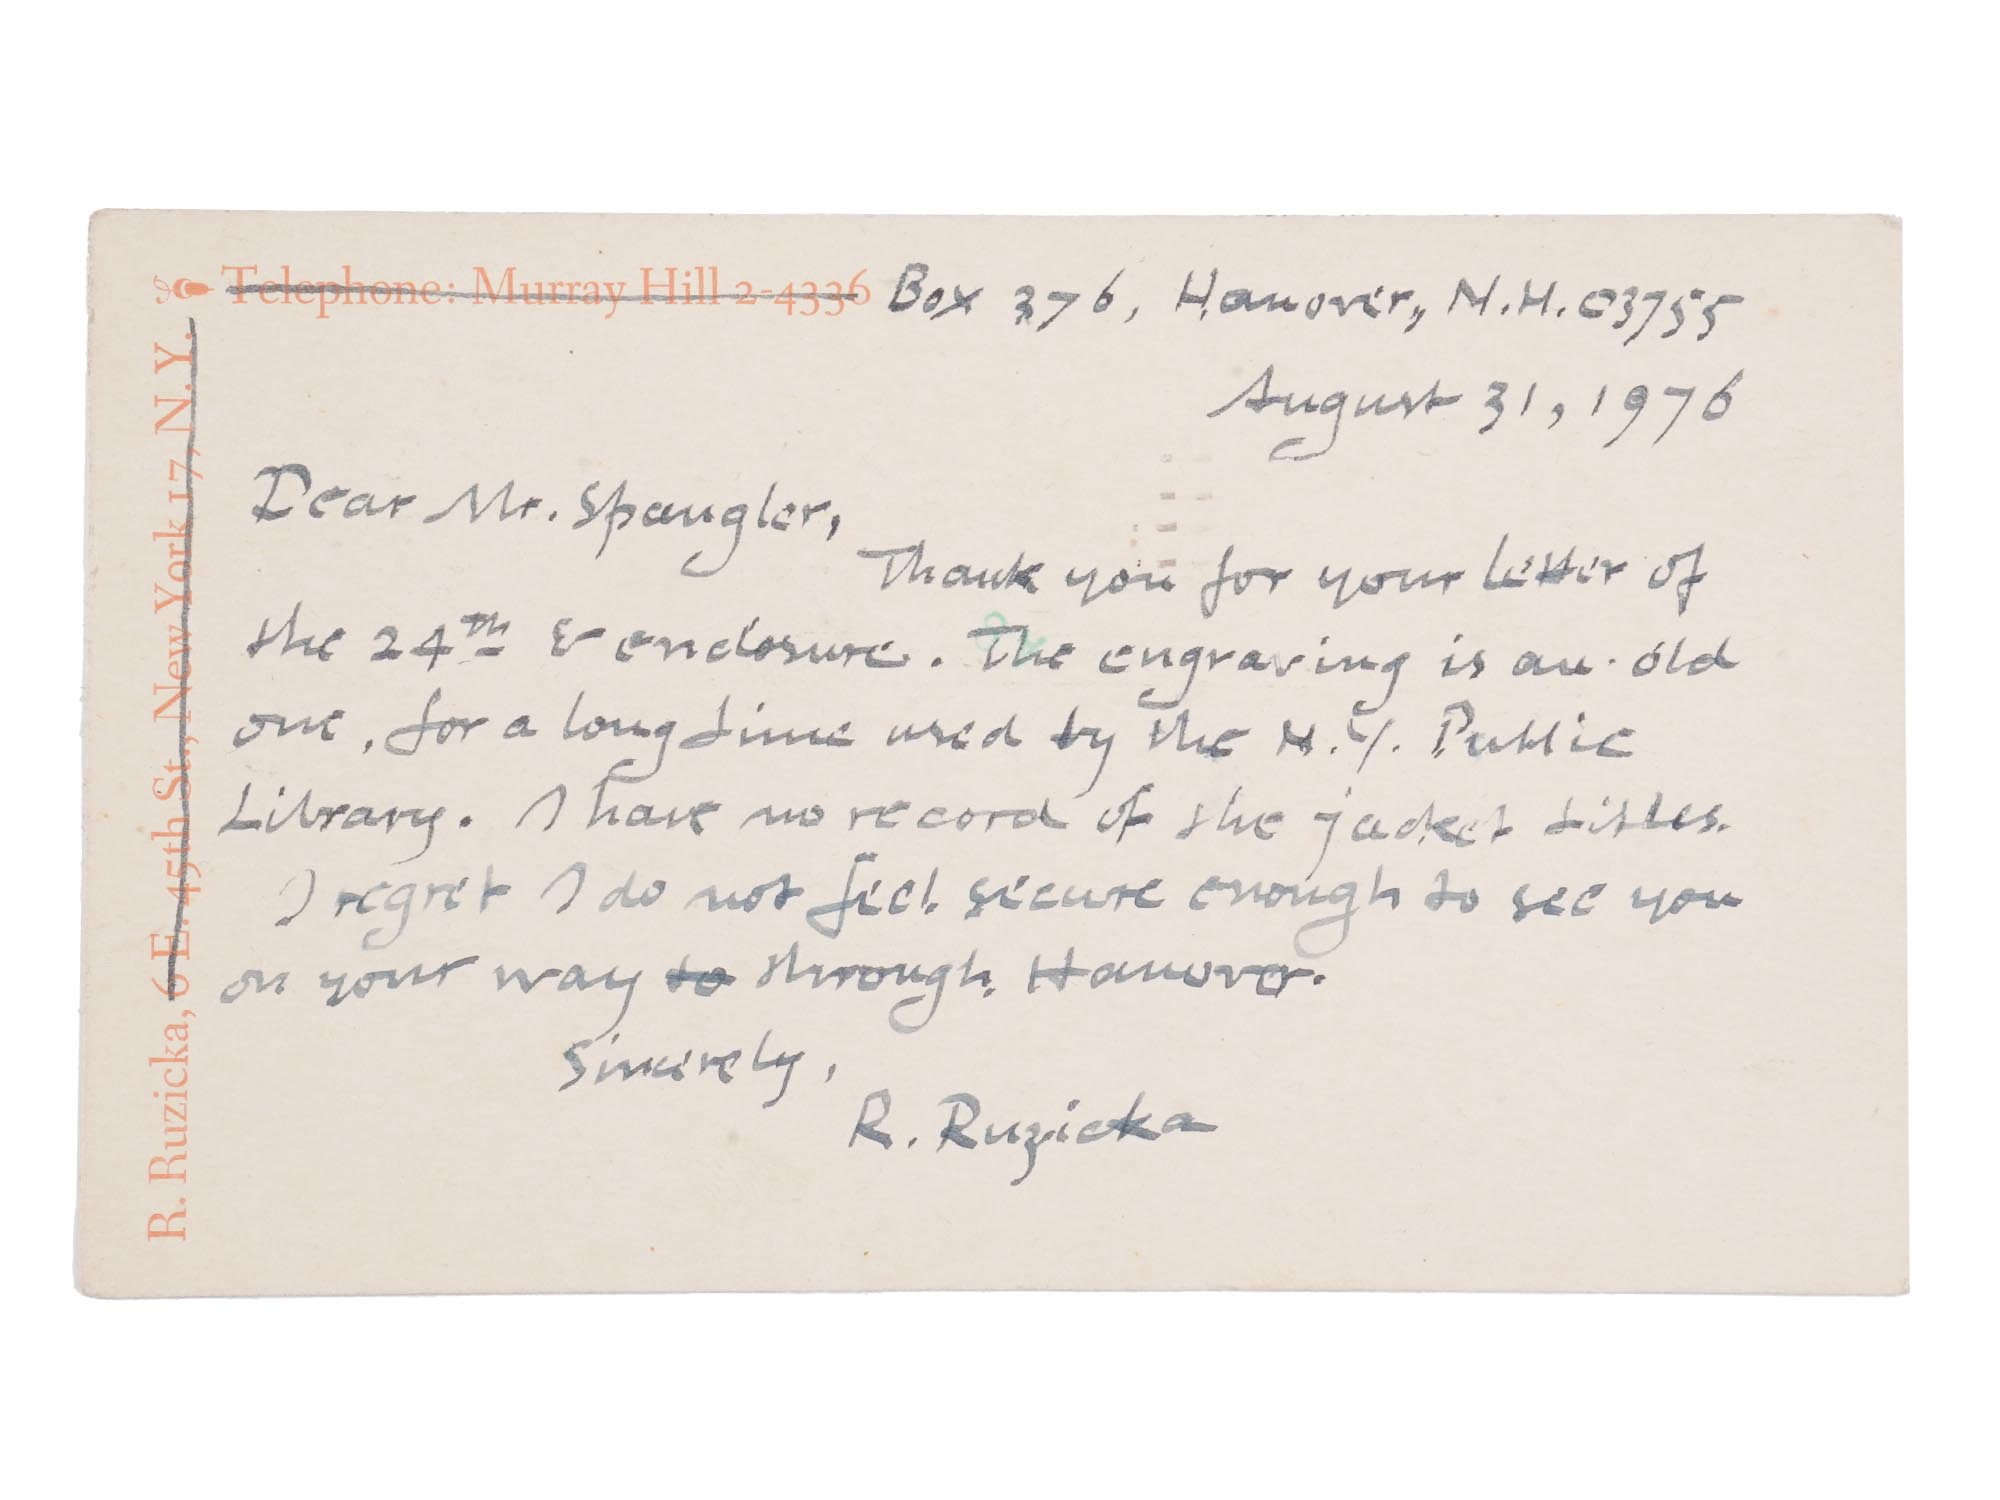 Telephone: Murray Hill 2-4336 Box 376, Hanover, N.H. 03755
R. Ruzicka, 6 E. 45th St., New York 17, N.Y.
August 31, 1976
Dear Mr. Spangler,
Thank you for your letter of
the 24th & enclosure. The engraving is an old
one, for a long time used by the N.Y. Public
Library. I have no record of the jacket titles.
I regret I do not feel secure enough to see you
on your way to through Hanover.
Sincerely,
R. Ruzicka